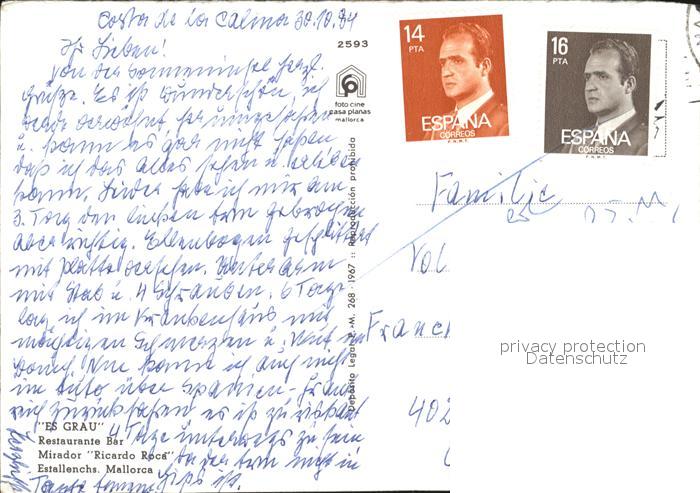 Costa de la Calma 30.10.84
Ihr Lieben!
Von der Sonneninsel herzl.
Grüße. Es ist wunderschön, ich
werde verwöhnt, herumgefahren
u. kann es gar nicht fassen,
daß ich das alles sehen u. erleben
kann. Leider habe ich mir am
3. Tag den linken Arm gebrochen
aber richtig. Ellenbogen gesplittert
mit Platte versehen. Unterarm
mit Stab u. 4 Schrauben. 6 Tage
lag ich im Krankenhaus mit
mächtigen Schmerzen u.
Nun kann ich auch nicht
im Auto über Spanien
zurückfahren es ist zu
4 Tage unterwegs zu sein
da der Arm nicht in
Gips ist.
2593
foto cine
casa planas
mallorca
Depósito Legal M. 268 - 1967 :: Reproducción prohibida
"ES GRAU"
Restaurante Bar
Mirador "Ricardo Roca"
Estallenchs. Mallorca
14
PTA
ESPAÑA
CORREOS
F.N.M.T.
16
PTA
ESPAÑA
CORREOS
F.N.M.T.
Familie
Vol
Franc
402
privacy protection
Datenschutz